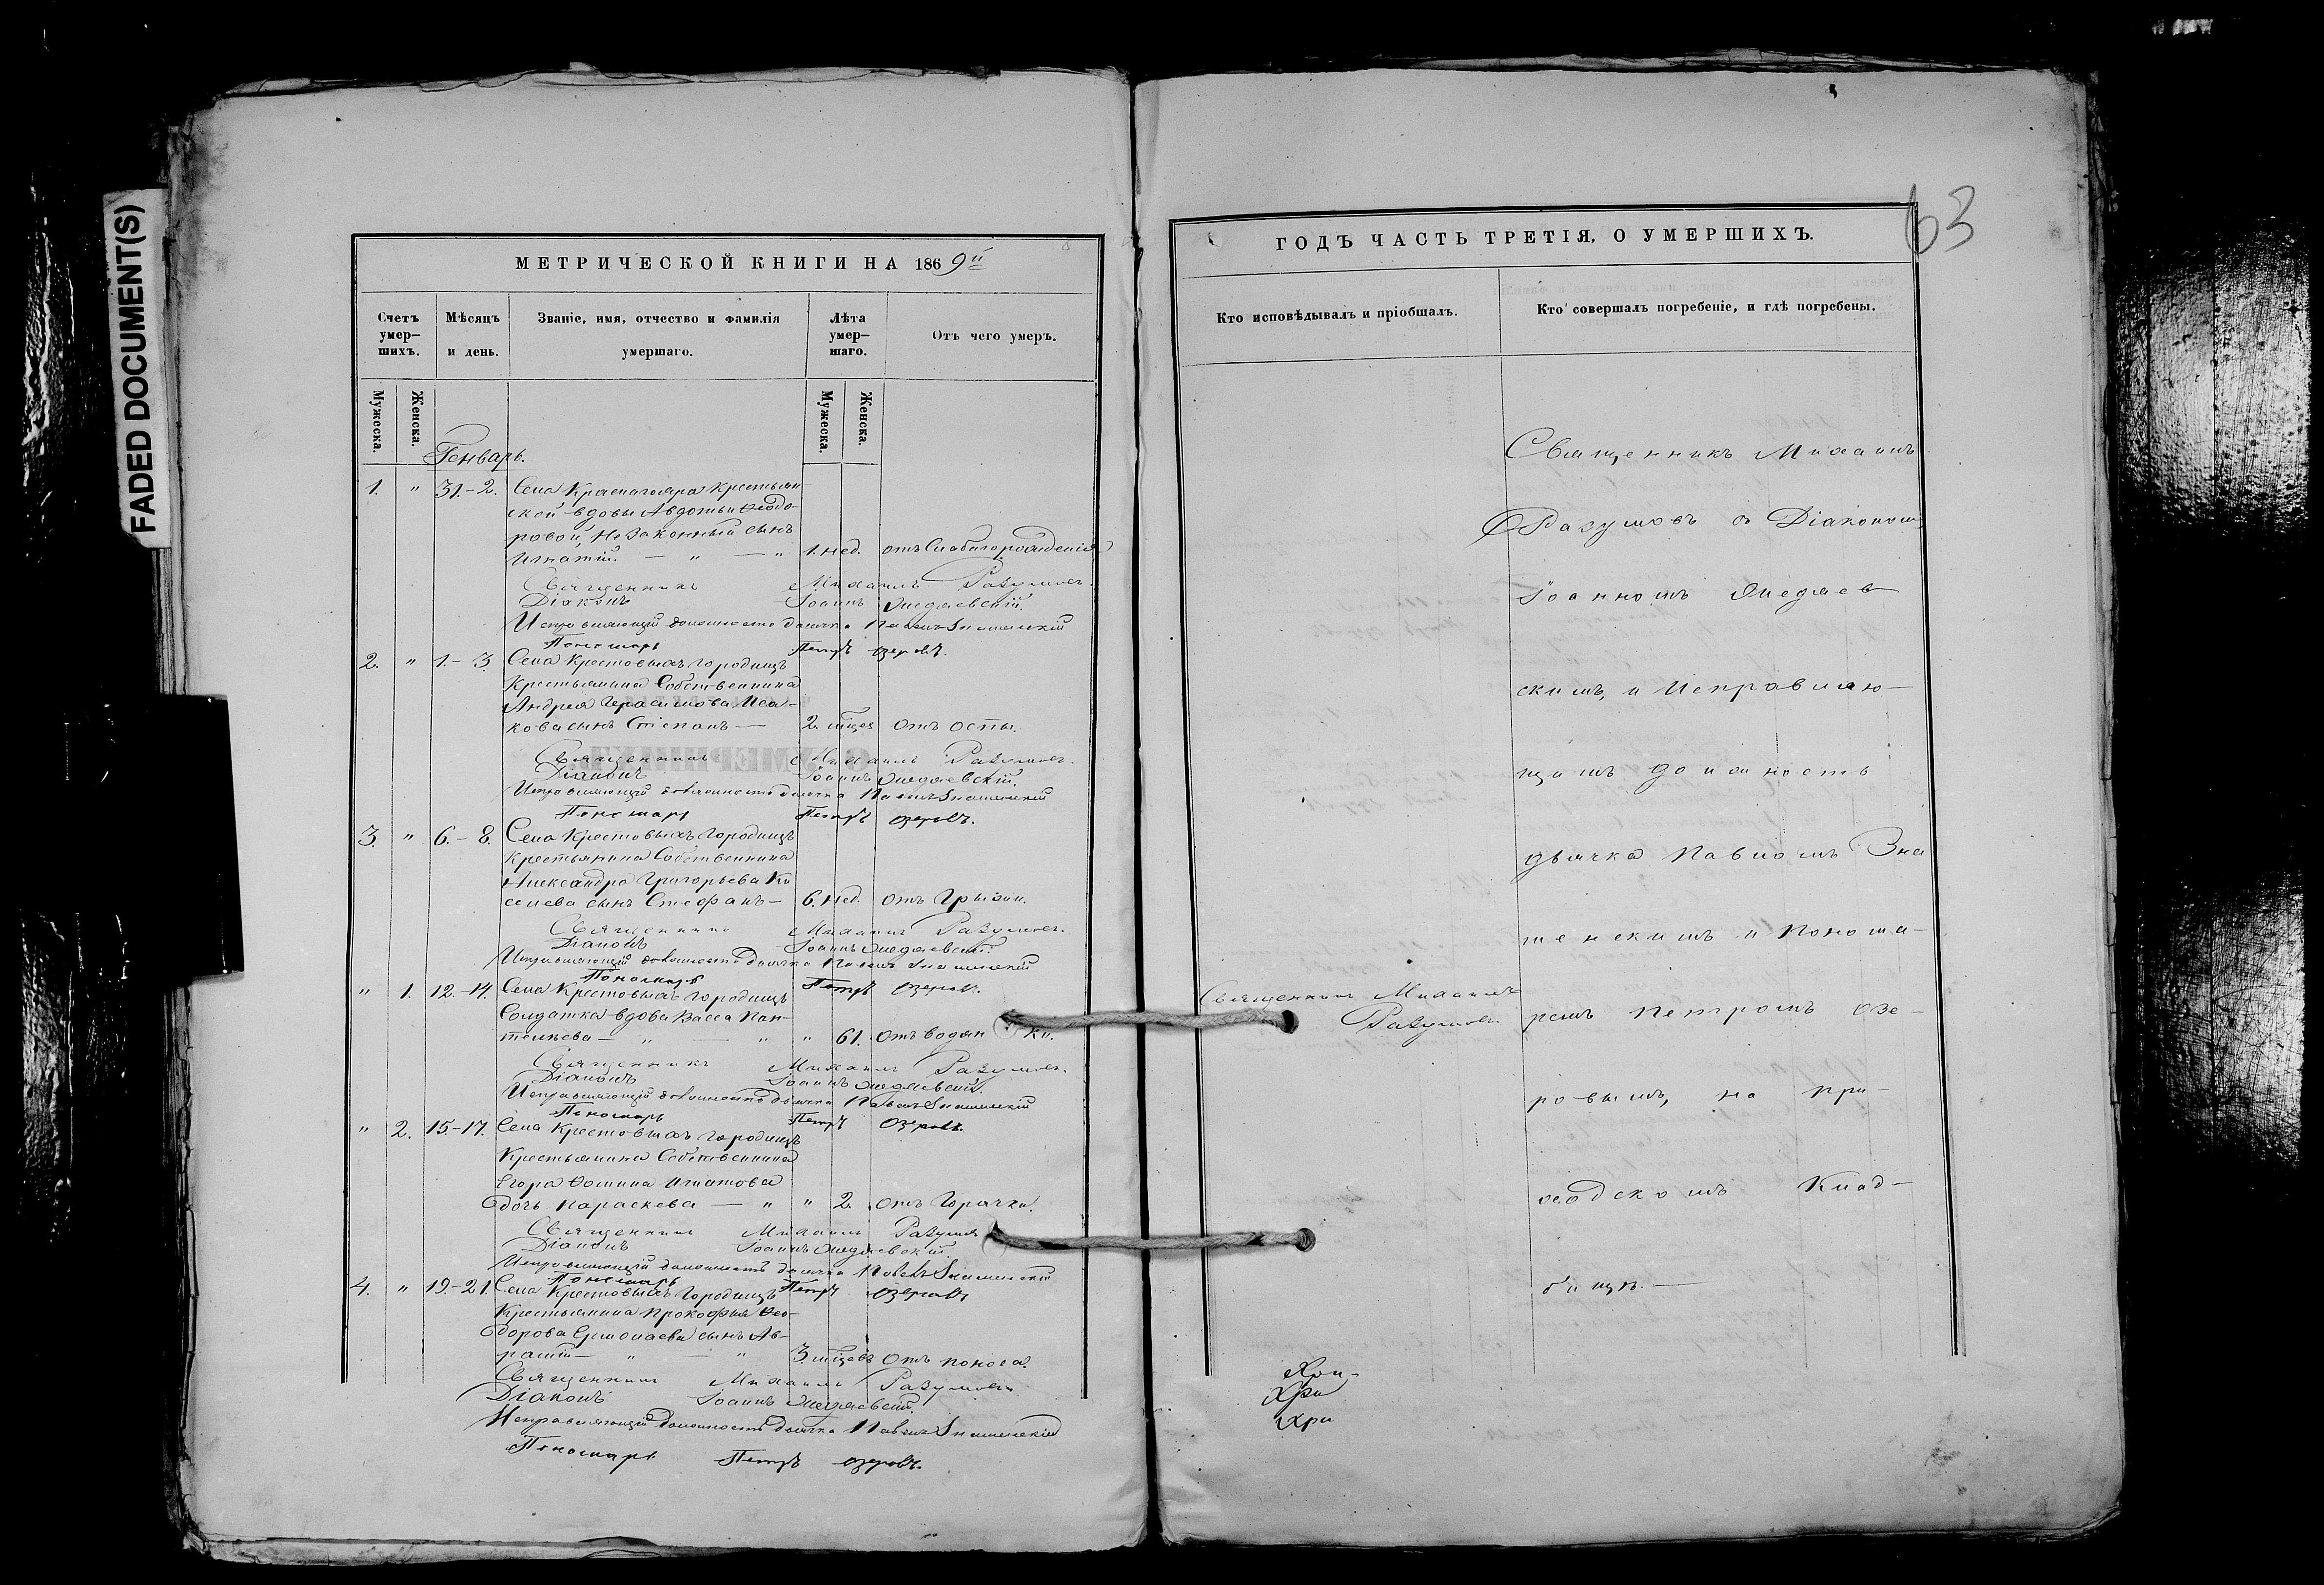 FADED DOCUMENT(S)
МЕТРИЧЕСКОЙ КНИГИ НА 1869й
Счетъ умер-шихъ.
Мѣсяцъ и день.
Званіе, имя, отчество и фамилія умершаго.
Лѣта умер-шаго.
Отъ чего умеръ.
Мужеска.
Женска.
Мужеска.
Женска.
Генварь.
1. " 31.-2. Села Краснагояра крестьян
ской вдовы Авдотьи Ѳеодо-
ровой, незаконный сынъ
Игнатій. — " — " 1. нед. отъ Слабагорожденія
Священникъ Михаилъ Разумовъ.
Діаконъ Іоаннъ
Исправляющій должность дьячка Павелъ Знаменскій
Пономарь Петръ Озеровъ.
2. " 1.-3. Села Крестовыхъ Городищъ
Крестьянина Собственника
Андрея Герасимова Иса-
кова сынъ Стефанъ — 2. мѣсяц отъ оспы.
Священникъ Михаилъ Разумовъ.
Діаконъ Іоаннъ
Исправляющій должность дьячка Павелъ Знаменскій
Пономарь Петръ Озеровъ.
3. " 6.-8. Села Крестовыхъ Городищъ
Крестьянина Собственника
Александра Григорьева Ки
селева сынъ Стефанъ — 6. нед. отъ Грыжи.
Священникъ Михаилъ Разумовъ.
Діаконъ Іоаннъ
Исправляющій должность дьячка Павелъ Знаменскій
Пономарь Петръ Озеровъ.
" 1. 12.-14. Села Крестовыхъ Городищъ
Солдатка вдова Васса Пан-
телѣева — " — " " 61. отъ водян ки.
Священникъ Михаилъ Разумовъ.
Діаконъ Іоаннъ
Исправляющій должность дьячка Павелъ Знаменскій
Пономарь Петръ Озеровъ.
" 2. 15.-17. Села Крестовыхъ Городищъ
Крестьянина Собственника
Егора Ѳомина Игнатова
дочь Параскева — " " 2. отъ Горячки.
Священникъ Михаилъ Разумов
Діаконъ Іоаннъ
Исправляющій должность дьячка Павелъ Знаменскій
Пономарь Петръ Озеровъ
4. " 19.-21. Села Крестовыхъ Городищъ
Крестьянина Прокофья Ѳео-
дорова Ермолаева сынъ Ав-
рамій — " — " 3. мѣсяцевъ отъ поноса.
Священникъ Михаилъ Разумовъ
Діаконъ Іоаннъ
Исправляющій должность дьячка Павелъ Знаменскій
Пономарь Петръ Озеровъ.
63
ГОДЪ ЧАСТЬ ТРЕТІЯ, О УМЕРШИХЪ.
Кто исповѣдывалъ и пріобщалъ.
Кто совершалъ погребеніе, и гдѣ погребены.
Священникъ Михаилъ
Разумовъ
Священникъ Михаилъ
Разумовъ съ Діакономъ
Іоанномъ
скимъ, и Исправляю-
щимъ должность
дьячка Павломъ Зна
менскимъ и Понома-
ремъ Петромъ Озе-
ровымъ, на при-
ходскомъ Клад-
бищѣ. —
Хри-
Хри
Хри